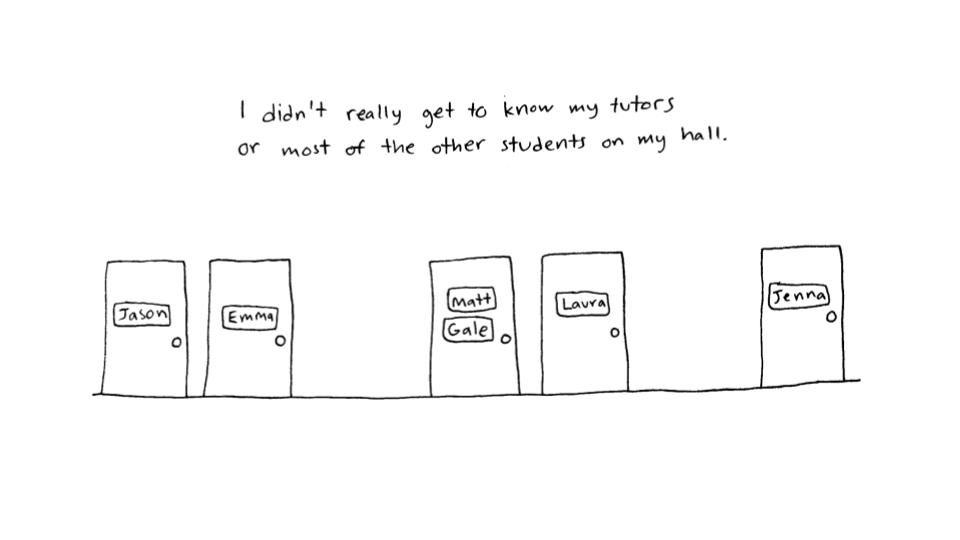 I didn't really get to know my tutors
or most of the other students on my hall.
Jason
Emma
Matt
Gale
Laura
Jenna